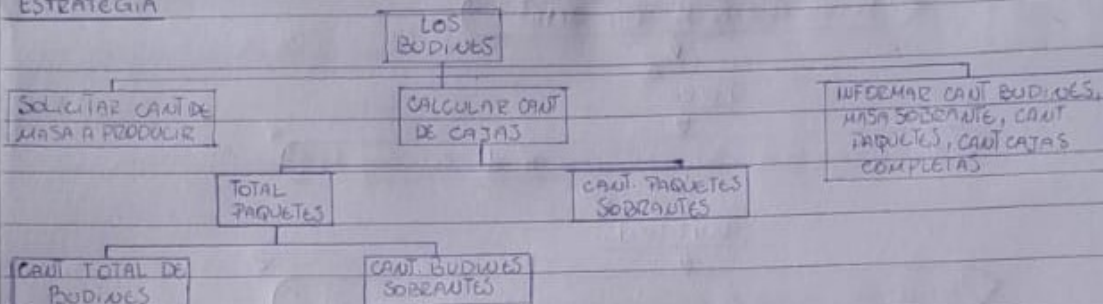 ESTRATEGIA
LOS
BUDINES
SOLICITAR CANT DE
MASA A PRODUCIR
CALCULAR CANT
DE CAJAS
INFORMAR CANT BUDINES,
MASA SOBRANTE, CANT
PAQUETES, CANT CAJAS
COMPLETAS
TOTAL
PAQUETES
CANT. PAQUETES
SOBRANTES
CANT TOTAL DE
BUDINES
CANT. BUDINES
SOBRANTES